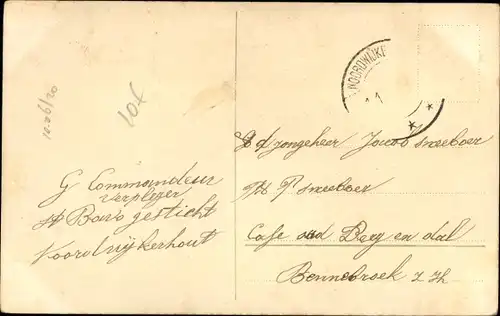 10-06/20
10f
G Commandeur
verpleger
st Bavo gesticht
Noordwijkerhout
NOORDWIJKE
d jongeheer Jacob sneeboer
P sneeboer
Cafe Berg en dal
Bennebroek Z H